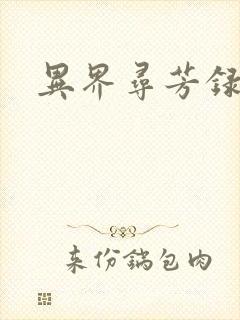 異界尋芳録
来份鍋包肉